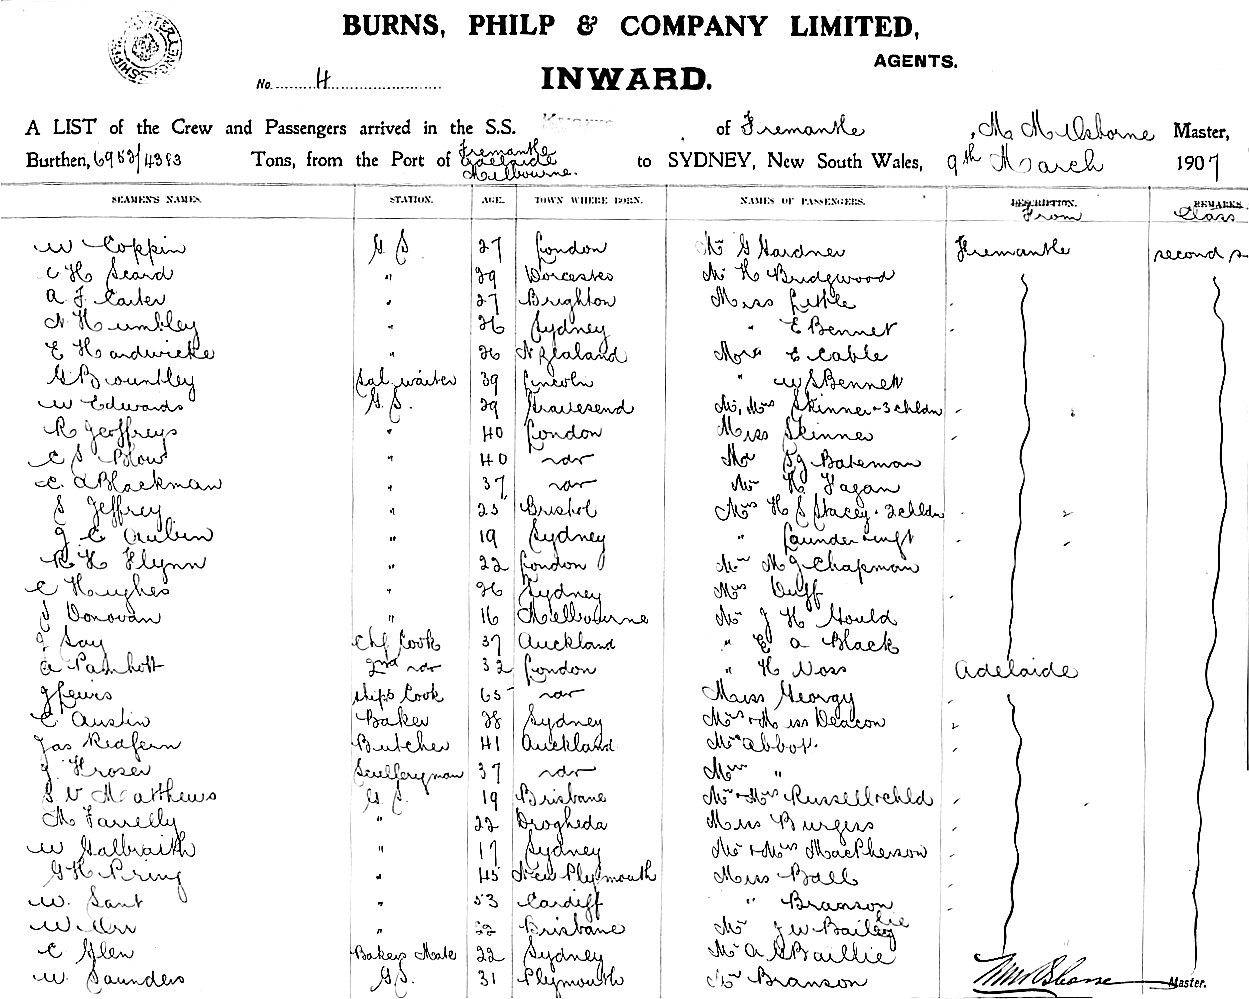 BURNS, PHILP & COMPANY LIMITED,
AGENTS.
No. 4 INWARD.
A LIST of the Crew and Passengers arrived in the S.S. of Fremantle, M M Osborne Master,
Burthen, 6953/4383 Tons, from the Port of Fremantle Adelaide Melbourne. to SYDNEY, New South Wales, 9th March 1907
SEAMEN'S NAMES. STATION. AGE. TOWN WHERE BORN. NAMES OF PASSENGERS. DESCRIPTION. From REMARKS. Class
W Coppin G S 27 London Mr G Gardner Fremantle second
C H Scard " 29 Worcester Mr H Bridgwood
A J Carter " 27 Brighton Miss Little
N Humbley " 26 Sydney " E Bennet
E Hardwicke " 26 N Zealand E Cable
G Brountley Sal. waiter 39 Lincoln " W S Bennett
W Edwards G. S. 29 Gravesend Mr, Mrs Skinner + 3 chldn
R Geoffreys " 40 London Miss Skinner
C S Blow " 40 do Mr Bateman
C. A Blackman " 37 do Mr H Fagan
S Jeffrey " 25 Bristol Mrs H S Stacey + 2 chldn
J C Aubin " 19 Sydney " Launder + inft
R H Flynn " 22 London M J Chapman
C Hughes " 26 Sydney Mrs Duff
S Donovan " 16 Melbourne Mr J H Gould
J Say Chf Cook 37 Auckland " E A Black
A Pamhott 2nd do 32 London " H Noss Adelaide
J Lewis Ships Cook 65 do Miss Georgy
C Austin Baker 28 Sydney Mrs + Miss Deacon
Jas Redfern Butcher 41 Auckland Mr Abbot.
J. Kroser Sculleryman 37 do "
S V Matthews G. S. 19 Brisbane Mr + Mrs Russell + chld
M Farrelly " 22 Drogheda Miss Burgess
W Galbraith " 17 Sydney Mr + Mrs MacPherson
G H Pring " 45 New Plymouth Miss Ball
W. Sant " 53 Cardiff " Branson
W Orr " 22 Brisbane Mr J W Bailie
C Glen Bakers Mate 22 Sydney Mr A G Baillie
W. Saunders G.S. 31 Plymouth Mr Branson
Master.